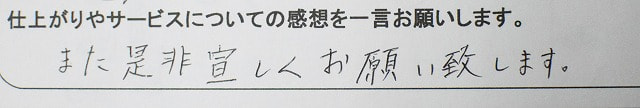 仕上がりやサービスについての感想を一言お願いします。
また是非宜しくお願い致します。